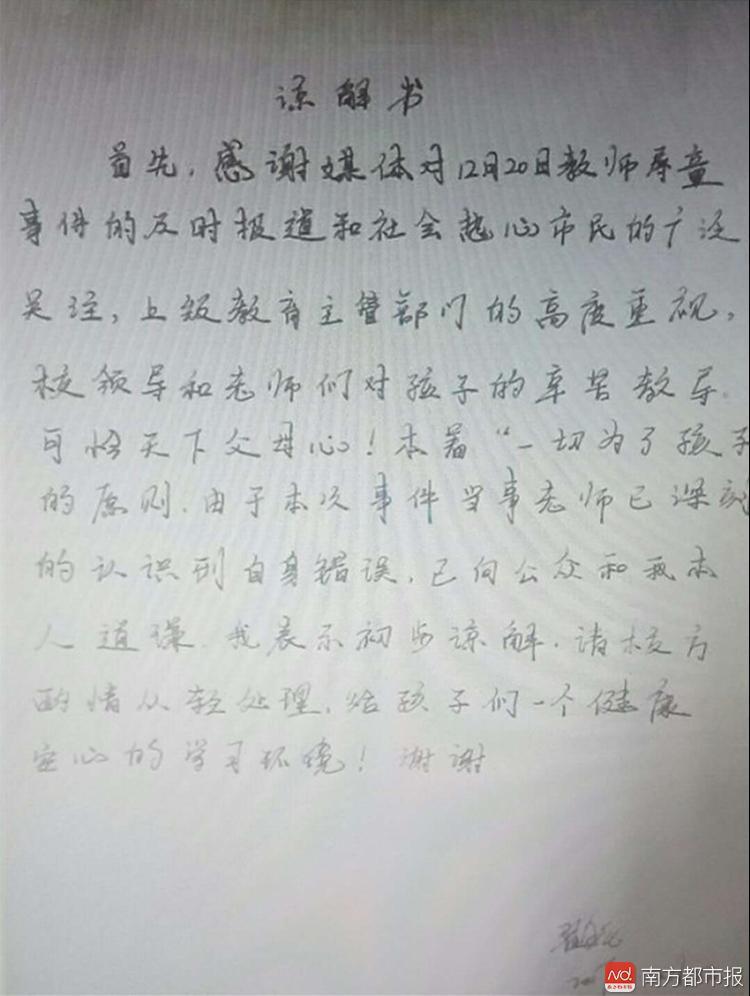 谅解书
首先，感谢媒体对12月20日教师辱童
事件的及时报道和社会热心市民的广泛
关注，上级教育主管部门的高度重视，
校领导和老师们对孩子的辛苦教导。
可怜天下父母心！本着“一切为了孩子
的原则．由于本次事件当事老师已深刻
的认识到自身错误．已向公众和我本
人道谦．我表示初步谅解．请校方
酌情从轻处理．给孩子们一个健康
安心的学习环境！谢谢
南方都市报